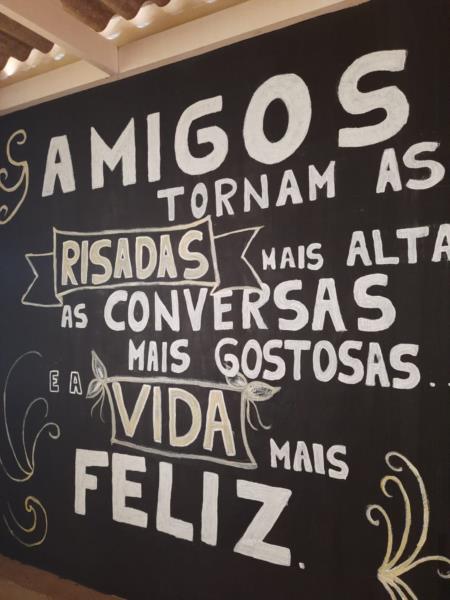 AMIGOS
TORNAM AS
RISADAS MAIS ALTA
AS CONVERSAS
MAIS GOSTOSAS..
E A VIDA MAIS
FELIZ.